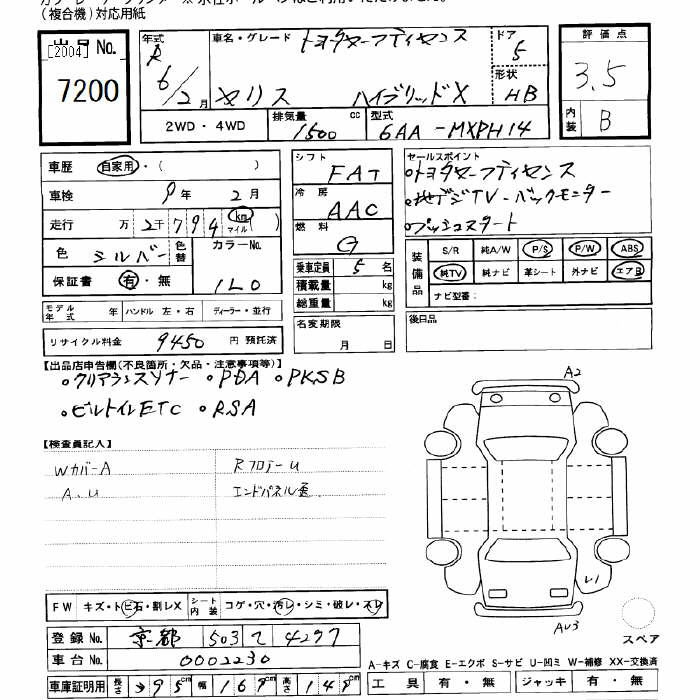 (複合機)対応用紙
出品No.
[2004]
7200
年式 R 6/2月
車名・グレード トヨタセーフティセンス
ヤリス ハイブリッドX
ドア 5
形状 HB
評価点 3.5
内装 B
2WD・4WD
排気量 1500 cc
型式 6AA-MXPH14
車歴 自家用・( )
車検 9年 2月
走行 万 2千 7 9 4 km マイル ( )
色 シルバー 色替
カラーNo. 1L0
保証書 有・無
モデル年式 年 ハンドル 左・右 ディーラー・並行
リサイクル料金 9450 円 預託済
シフト FAT
冷房 AAC
燃料 G
乗車定員 5 名
積載量 kg
総重量 kg
名変期限
月 日
セールスポイント
・トヨタセーフティセンス
・地デジTV・バックモニター
・プッシュスタート
装備品
S/R 純A/W P/S P/W ABS
純TV 純ナビ 革シート 外ナビ エアB
ナビ型番:
後日品
【出品店申告欄(不良箇所・欠品・注意事項等)】
・クリアランスソナー ・PDA ・PKSB
・ビルトインETC ・RSA
【検査員記入】
WカバーA RフロアーU
A.U エンドパネル歪
A2
L1
AU3
スペア
FW キズ・トビ石・割レX シート内装 コゲ・穴・汚レ・シミ・破レ・スレ
登録No. 京都 503 て 4297
車台No. 0002230
車庫証明用 長さ 395cm 幅 169cm 高さ 149cm
A-キズ C-腐食 E-エクボ S-サビ U-凹ミ W-補修 XX-交換済
工具 有・無 ジャッキ 有・無